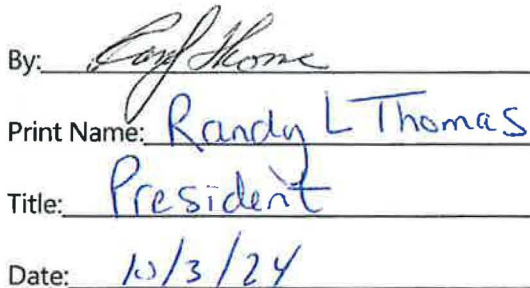 By:
Print Name: Randy L Thomas
Title: President
Date: 10/3/24